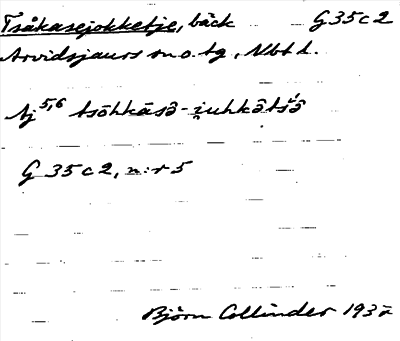 Tsåkasejokketje, bäck G 35 c 2
Arvidsjaurs sn o. tg, Nbt l.
Aj 5,6 tsōhkāsə̂ - i̯uhkə̂tśə̂
G 35 c 2, n:r 5
Björn Collinder 193